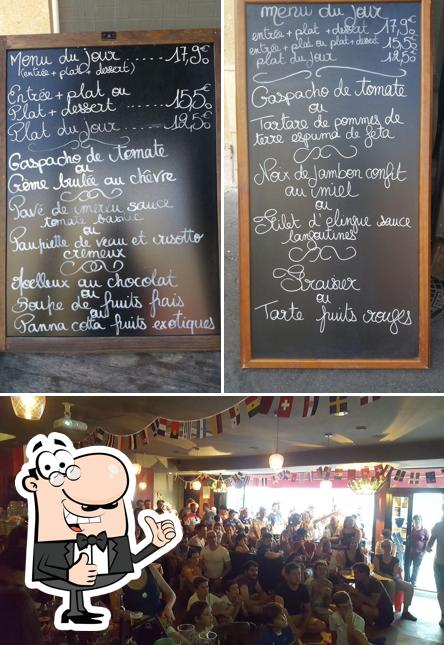 Menu du jour ...... 17,9€
(entrée + plat + dessert)
Entrée + plat ou
Plat + dessert ...... 15,5€
Plat du jour ...... 12,5€
Gaspacho de tomate
ou
Crème brulée au chèvre
Pavé de merlu sauce
tomate basilic
ou
Paupiette de veau et risotto
crémeux
Moelleux au chocolat
ou
Soupe de fruits frais
ou
Panna cotta fruits exotiques
menu du jour
entrée + plat + dessert 17,9€
entrée + plat ou plat + dessert 15,5€
plat du jour 12,5€
Gaspacho de tomate
ou
Tartare de pommes de
terre espuma de feta
Noix de jambon confit
au miel
ou
Filet d'elingue sauce
langoustines
ou
Tarte fruits rouges